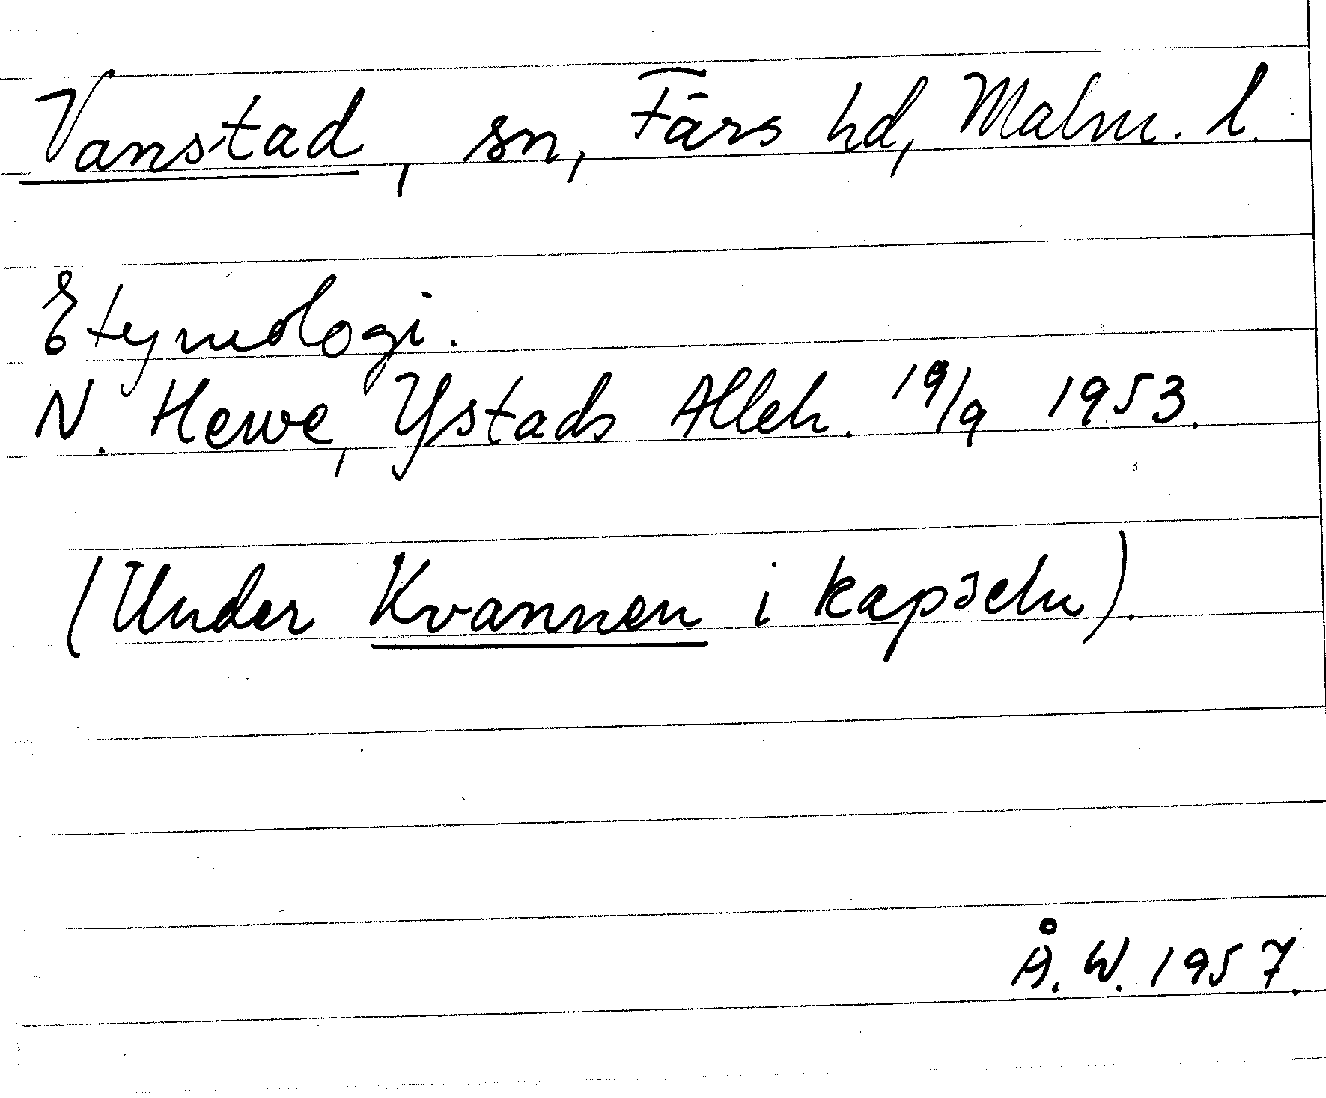 Vanstad, sn, Färs hd, Malm. l.
Etymologi.
N. Hewe, Ystads Alleh. 19/9 1953.
(Under Kvannen i kapseln).
Å. W. 1957.